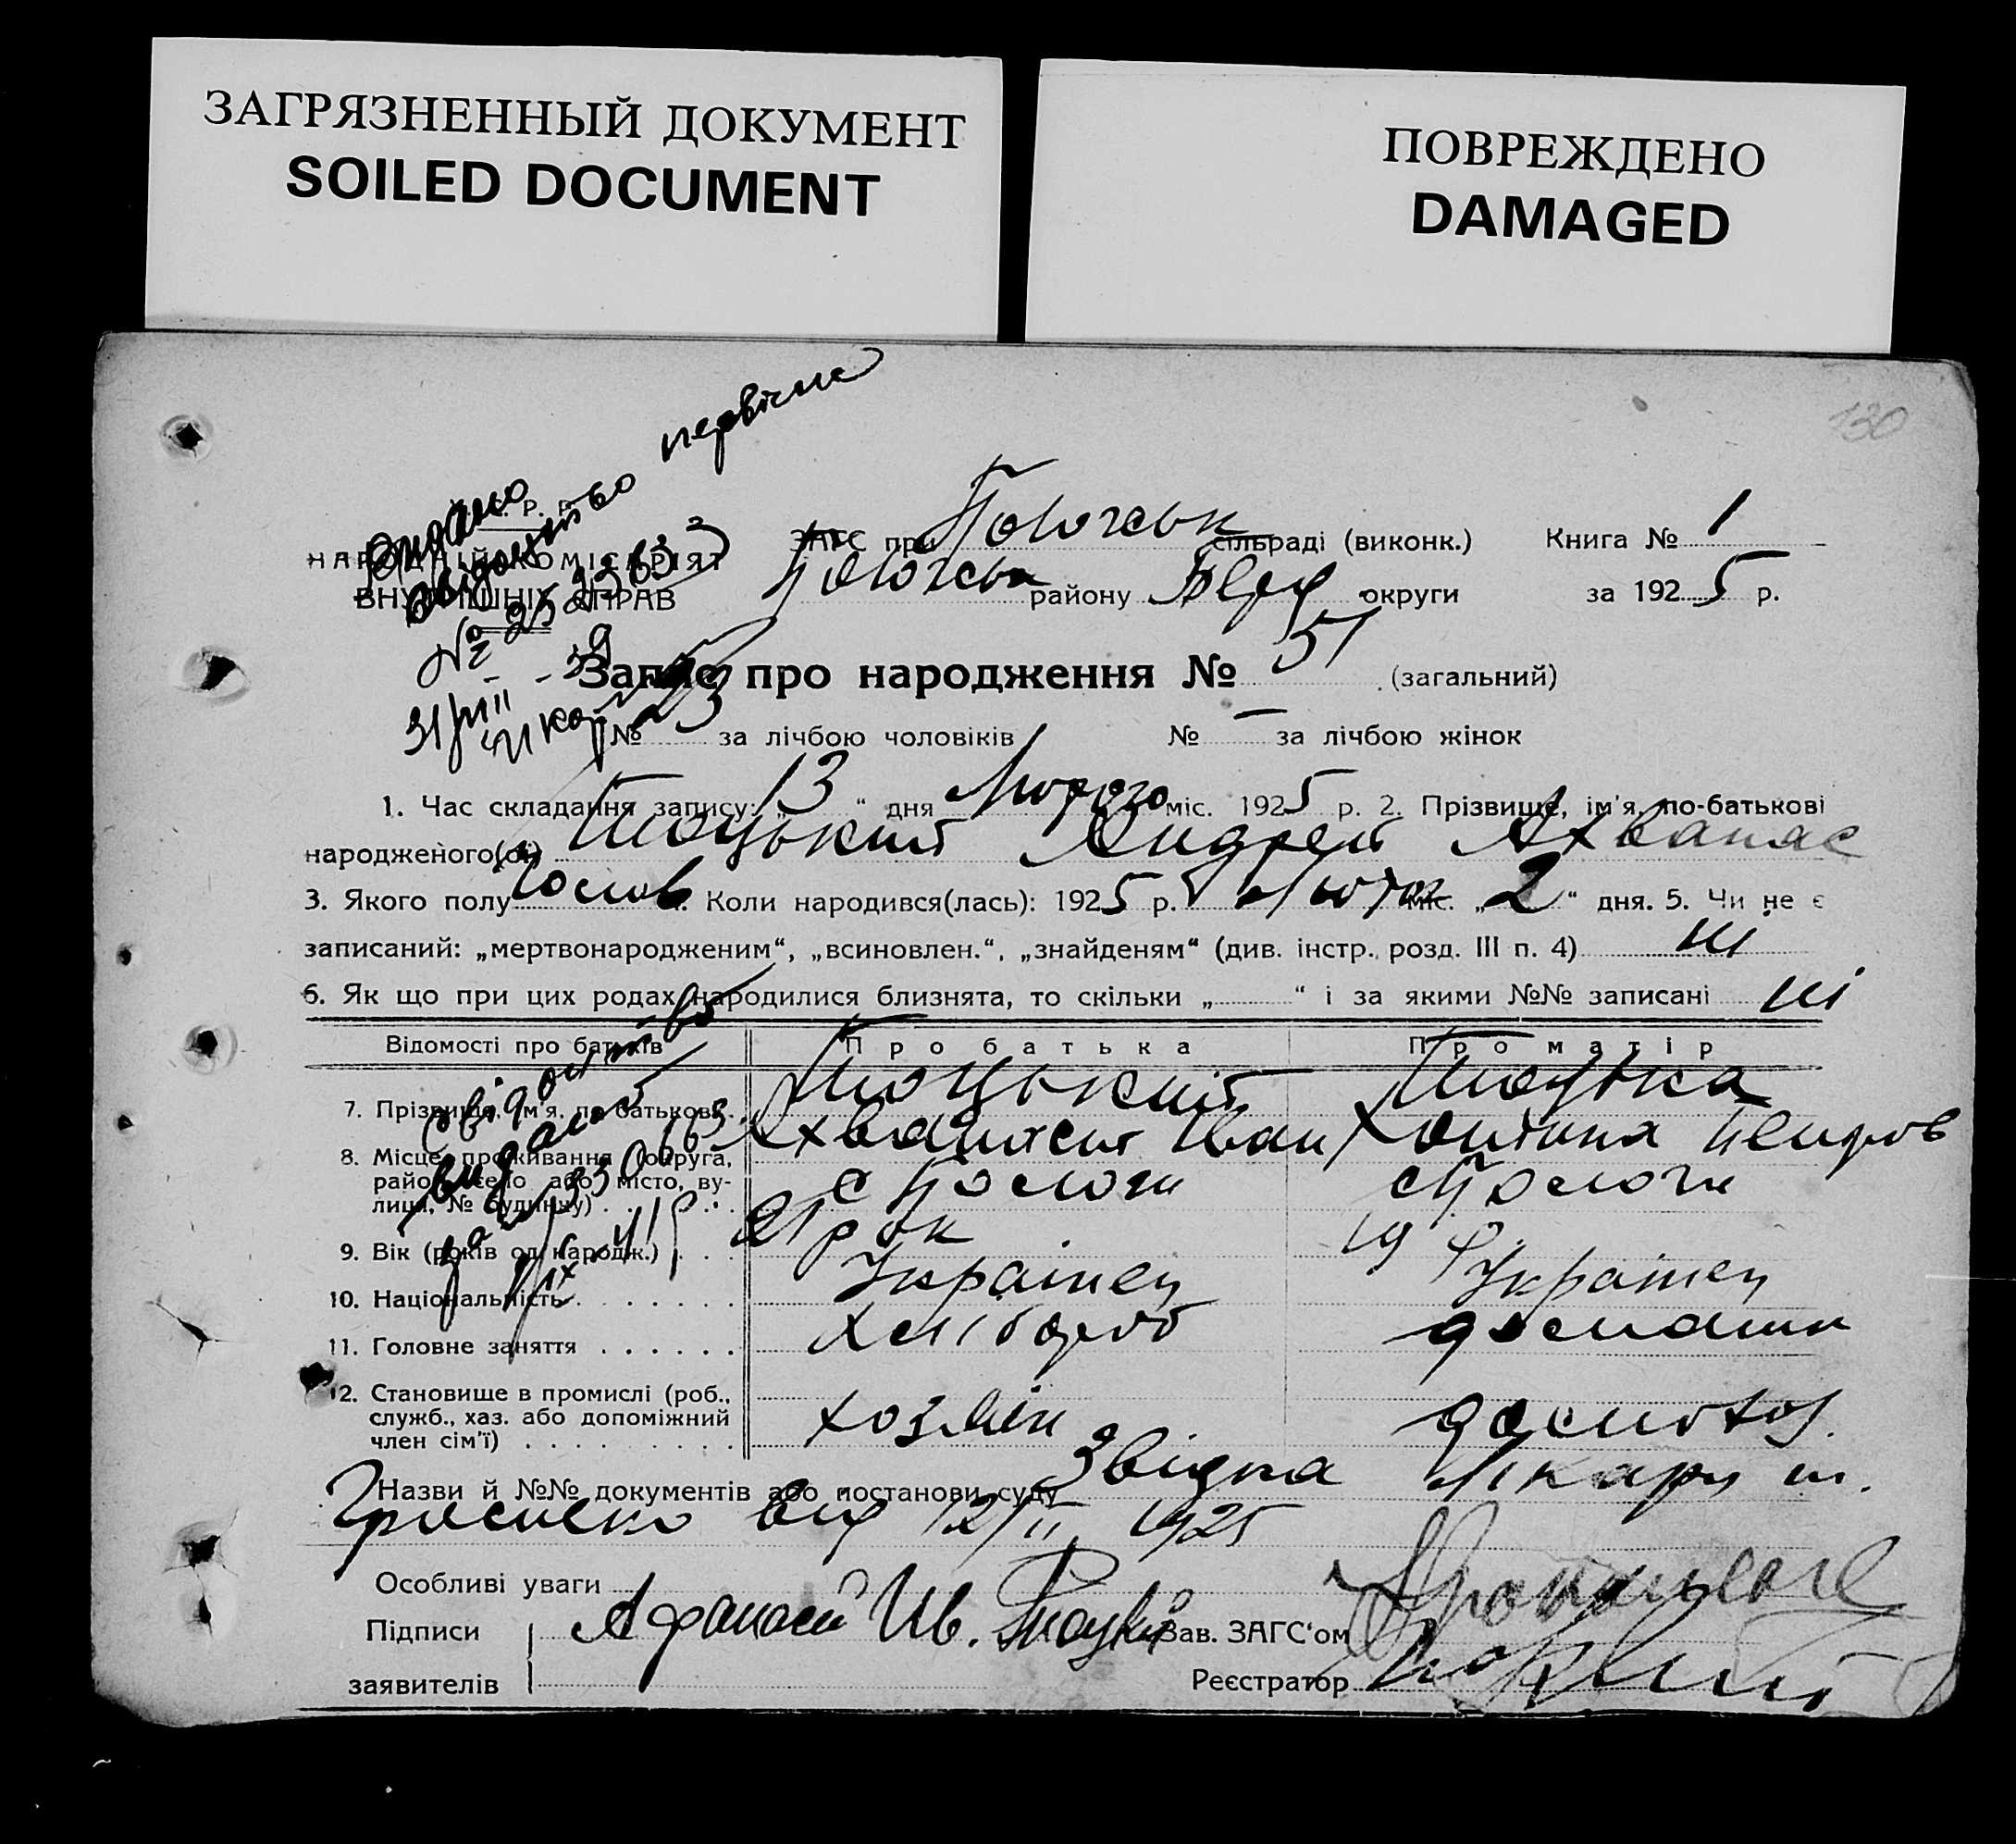 ЗАГРЯЗНЕННЫЙ ДОКУМЕНТ
SOILED DOCUMENT
ПОВРЕЖДЕНО
DAMAGED
130
Видано
свідоцтво первісне
№
НАРОДНІЙ КОМІСАРІЯТ
ВНУТРІШНІХ СПРАВ
ЗАГС при сільраді (виконк.) Книга № 1
району округи за 1925 р.
Запис про народження № 51 (загальний)
№ 23 за лічбою чоловіків № — за лічбою жінок
1. Час складання запису: „13“ дня Лютого міс. 1925 р. 2. Прізвище, ім'я, по-батькові
народженого(ої) Андрей Ахванас
3. Якого полу Чолов. Коли народився(лась): 1925 р. Лютог міс. „2“ дня. 5. Чи не є
записаний: „мертвонародженим“, „всиновлен.“, „знайденям“ (див. інстр. розд. III п. 4) ні
6. Як що при цих родах народилися близнята, то скільки „ “ і за якими №№ записані ні
Відомості про батьків Про батька Про матір
7. Прізвище, ім'я, по батькові. Іван
8. Місце проживання (округа, район, село або місто, ву-
лиця, № будинку) с Пологи с Пологи
9. Вік (років од народж.) 21 рок 19 р
10. Національність Українец Українец
11. Головне заняття Хлібороб домашн
12. Становище в промислі (роб.,
служб., хаз. або допоміжний
член сім'ї) хозяїн домохоз.
свідоцтво
видано
Назви й №№ документів або постанови суду Звідка Лікаря
від 12/II 1925
Особливі уваги
Підписи Афанасий Ив. Зав. ЗАГС'ом
заявителів Реєстратор